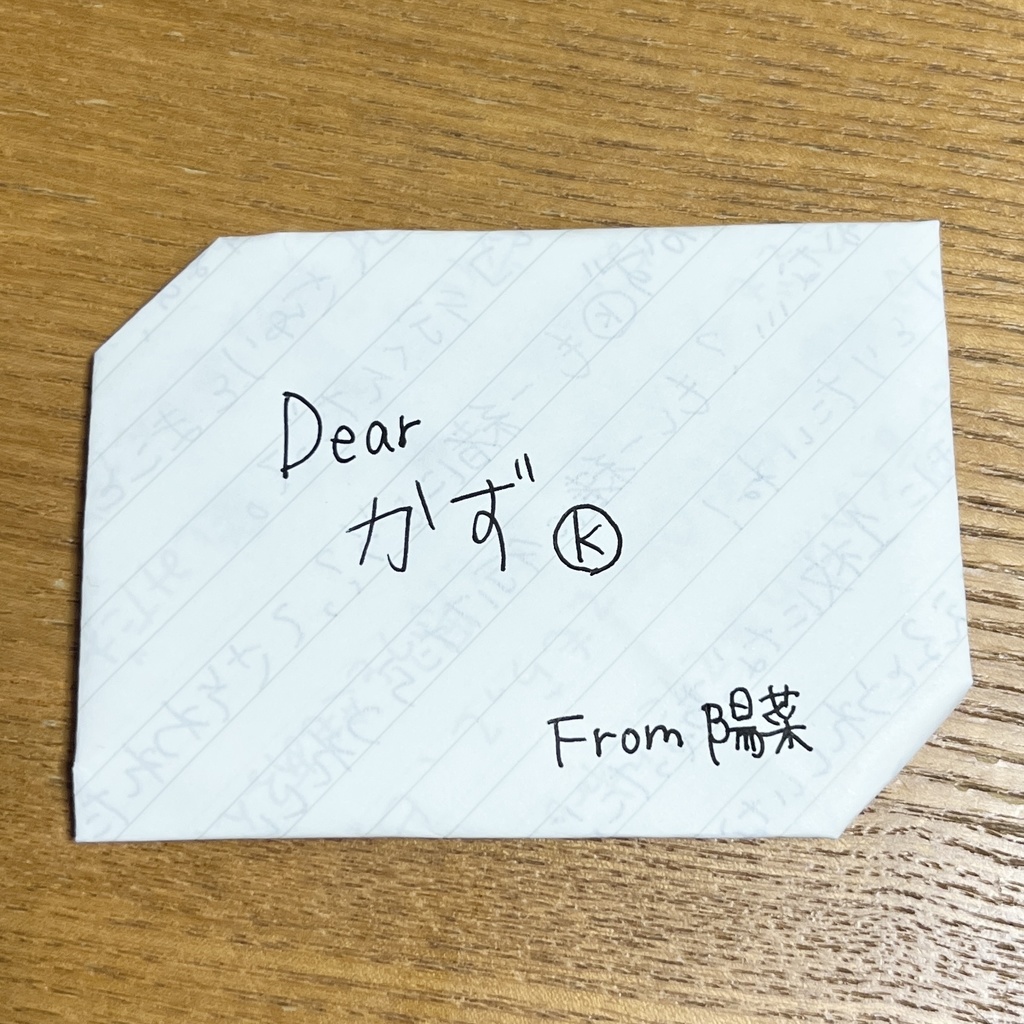 Dear
かずⓚ
From 陽菜